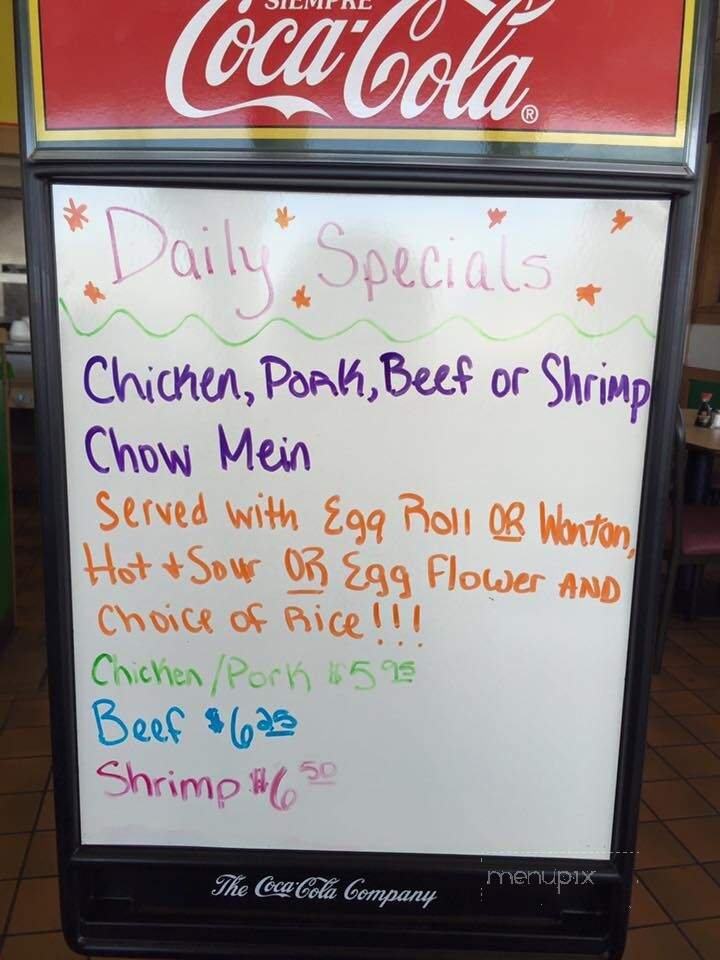 SIEMPRE
Coca-Cola®
Daily Specials
Chicken, Pork, Beef or Shrimp
Chow Mein
Served with Egg Roll OR Wonton,
Hot + Sour OR Egg Flower AND
Choice of Rice!!!
Chicken/Pork $5 95
Beef $6 25
Shrimp $6 50
The Coca-Cola Company
menupix